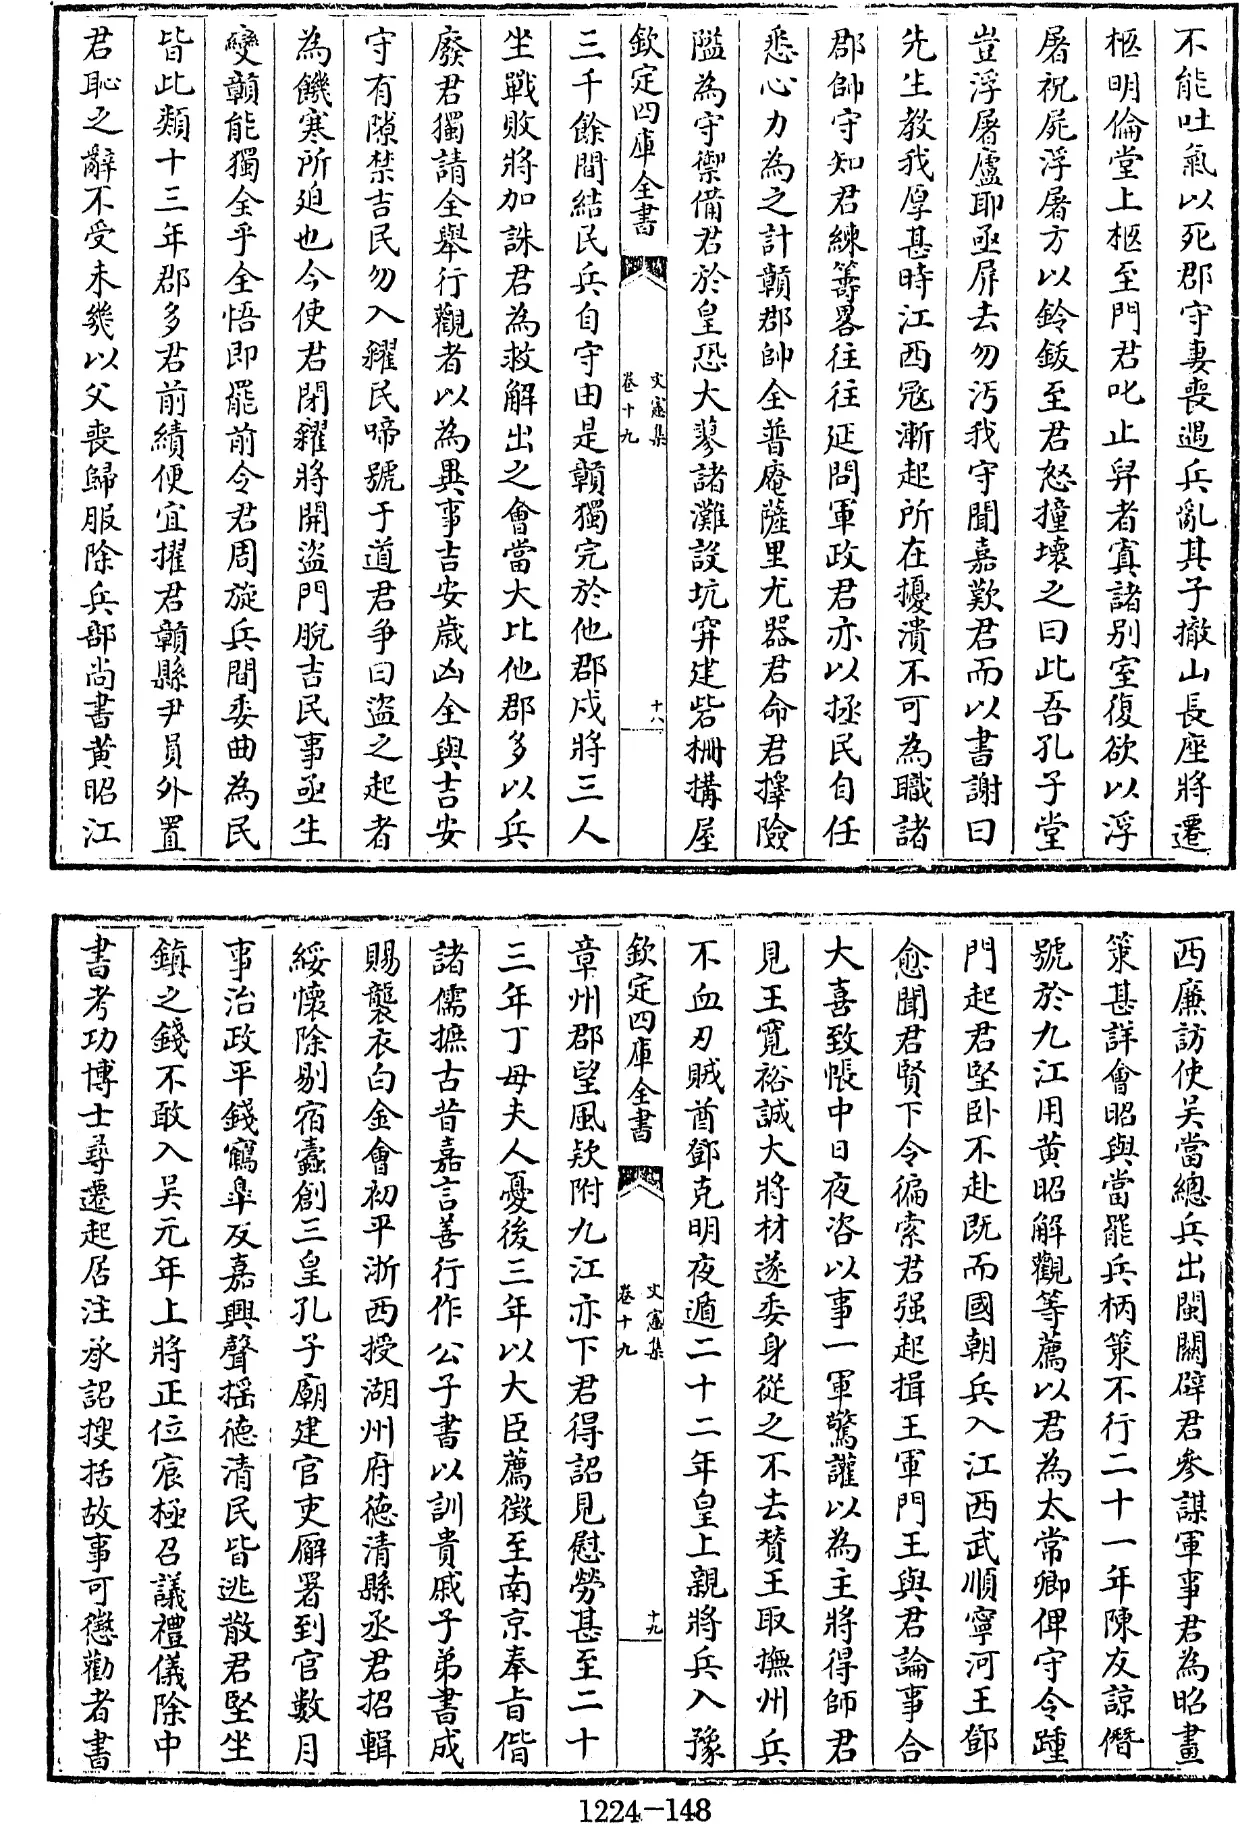 不能吐氣以死郡守妻喪遇兵亂其子撤山長座將遷
柩明倫堂上柩至門君叱止舁者寘諸别室復欲以浮
屠祝屍浮屠方以鈴鈸至君怒撞壊之曰此吾孔子堂
豈浮屠廬耶亟屏去勿汚我守聞嘉歎君而以書謝曰
先生教我厚甚時江西冦漸起所在擾潰不可為職諸
郡帥守知君練籌畧往往延問軍政君亦以拯民自任
悉心力為之計贛郡帥全普庵薩里尤器君命君擇險
隘為守禦備君於皇恐大蓼諸灘設坑穽建砦柵搆屋
欽定四庫全書
文憲集
卷十九
十八
三千餘間結民兵自守由是贛獨完於他郡戍將三人
坐戰敗將加誅君為救解出之會當大比他郡多以兵
廢君獨請全舉行觀者以為異事吉安歲凶全與吉安
守有隙禁吉民勿入糴民啼號于道君争曰盜之起者
為饑寒所廹也今使君閉糴將開盜門脫吉民事亟生
變贛能獨全乎全悟即罷前令君周旋兵間委曲為民
皆此類十三年郡多君前績便宜擢君贛縣尹員外置
君恥之辭不受未幾以父喪歸服除兵部尚書黄昭江
西廉訪使吴當總兵出閩闗辟君參謀軍事君為昭畫
策甚詳會昭與當罷兵柄策不行二十一年陳友諒僭
號於九江用黄昭解觀等薦以君為太常卿俾守令踵
門起君堅卧不赴既而國朝兵入江西武順寧河王鄧
愈聞君賢下令徧索君强起揖王軍門王與君論事合
大喜致帳中日夜咨以事一軍驚讙以為主將得師君
見王寛裕誠大將材遂委身從之不去賛王取撫州兵
不血刃賊酋鄧克明夜遁二十二年皇上親將兵入豫
欽定四庫全書
文憲集
卷十九
十九
章州郡望風欵附九江亦下君得詔見慰勞甚至二十
三年丁母夫人憂後三年以大臣薦徵至南京奉旨偕
諸儒摭古昔嘉言善行作公子書以訓貴戚子弟書成
賜襲衣白金會初平浙西授湖州府徳清縣丞君招輯
綏懷除剔宿蠹創三皇孔子廟建官吏廨署到官數月
事治政平錢鶴臯反嘉興聲揺徳清民皆逃散君堅坐
鎮之錢不敢入吴元年上將正位宸極召議禮儀除中
書考功博士尋遷起居注承詔搜括故事可懲勸者書
1224-148